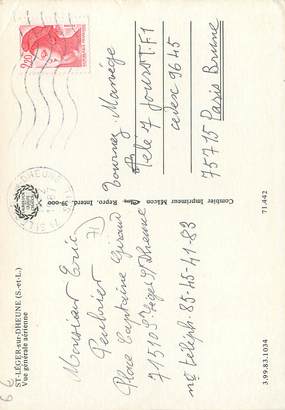 ST-LÉGER-sur-DHEUNE (S.-et-L.)
Vue générale aérienne
Monsieur Eric
Penhrier
Place Capitaine Giraud
71510 St Léger s/ Dheune
no teleph. 85-45-41-83
71
Combier Imprimeur Mâcon Repro. Interd. 39-000
71.442
3.99.83.1034
Tournez Manège
Télé 7 Jours T.F1
cedex 9645
75715 Paris Brune
2,20
DHEUNE